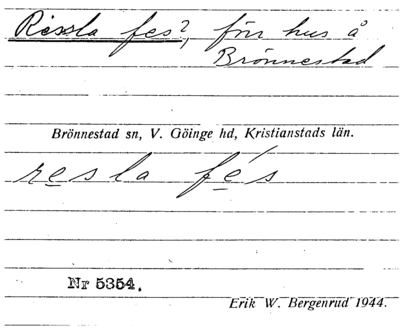 Rissla fes?, förr hus å
Brönnestad
Brönnestad sn, V. Göinge hd, Kristianstads län.
resla fés
Nr 5354.
Erik W. Bergenrud 1944.